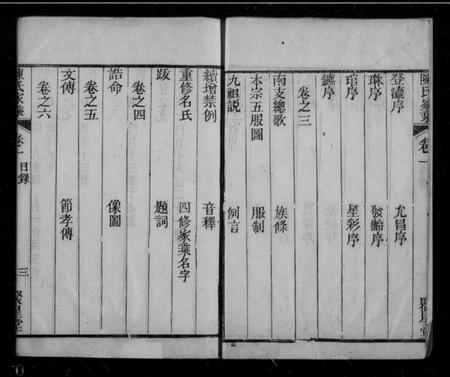 陳氏家乘
卷一
登瀛序 尤昌序
珠序 發齡序
琯序 星彩序
鑣序
卷之三
南支總歌 族條
本宗五服圖 服制
九祖説 例言
續增禁例 音釋
重修名氏 四修家乘名字
跋 題詞
卷之四
誥命 像圖
卷之五
文傳 節孝傳
卷之六
陳氏家乘
卷一 目錄
三
聚星堂